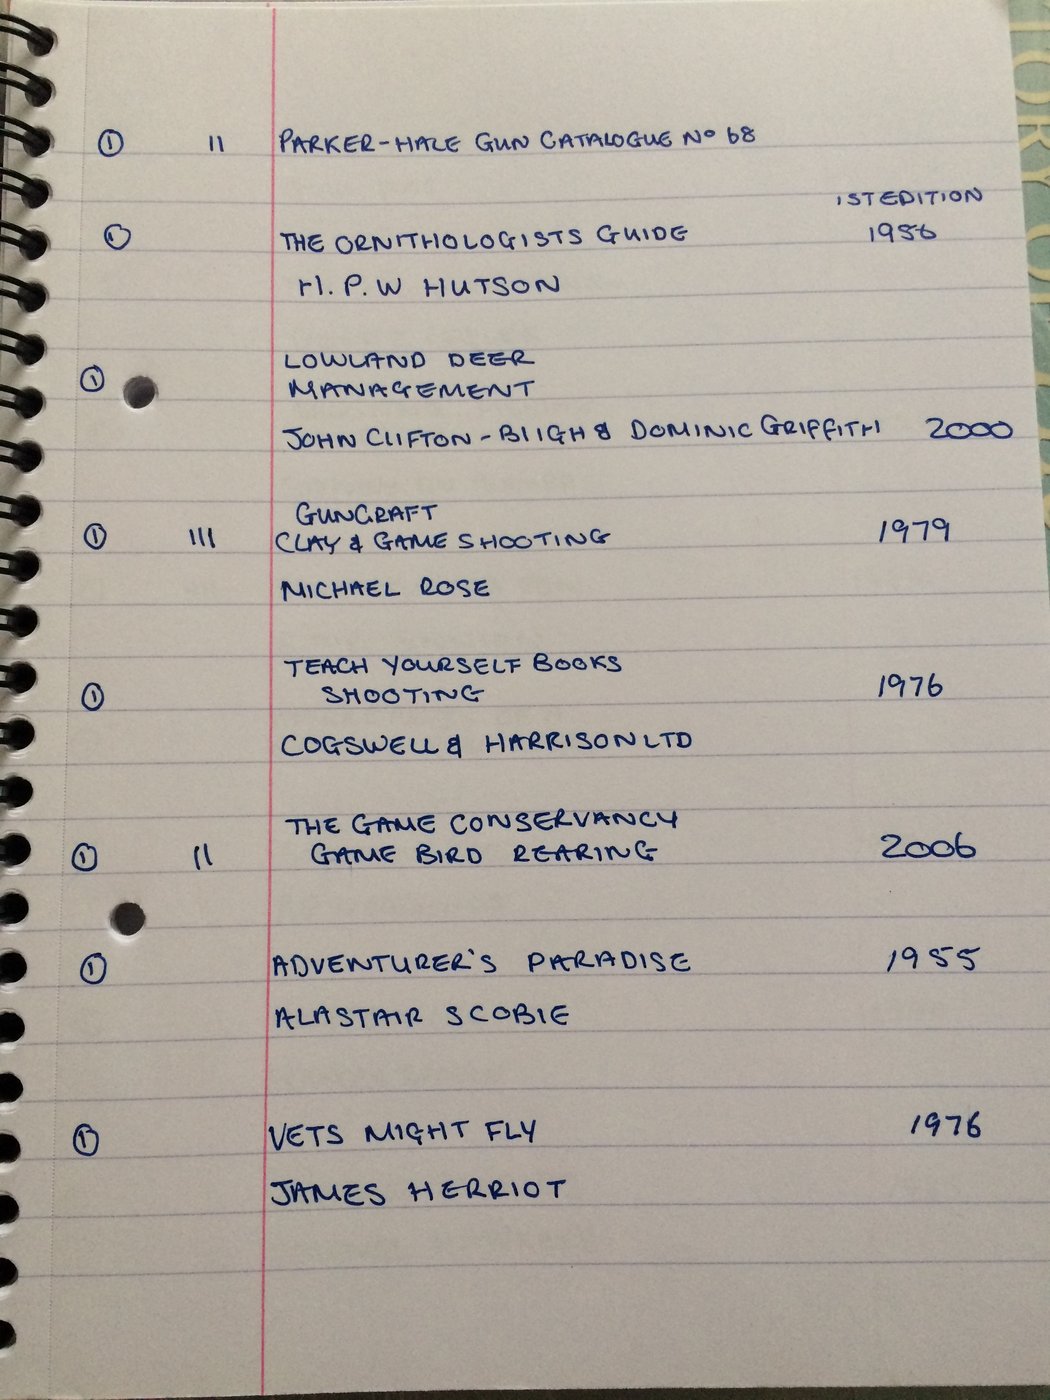 ① II PARKER-HALE GUN CATALOGUE Nº 68
1ST EDITION
① THE ORNITHOLOGISTS GUIDE 1956
H. P. W HUTSON
LOWLAND DEER
① MANAGEMENT
JOHN CLIFTON-BLIGH & DOMINIC GRIFFITH 2000
GUNCRAFT
① III CLAY & GAME SHOOTING 1979
MICHAEL ROSE
TEACH YOURSELF BOOKS
① SHOOTING 1976
COGSWELL & HARRISON LTD
THE GAME CONSERVANCY
① II GAME BIRD REARING 2006
① ADVENTURER'S PARADISE 1955
ALASTAIR SCOBIE
① VETS MIGHT FLY 1976
JAMES HERRIOT